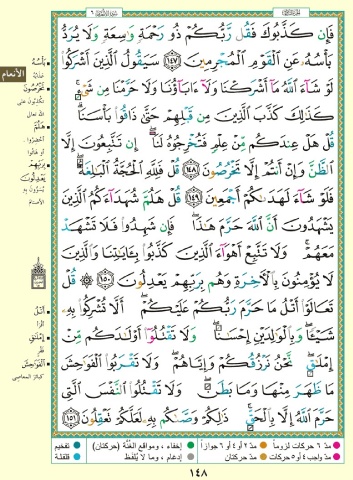 فَإِن كَذَّبُوكَ فَقُل رَّبُّكُمْ ذُو رَحْمَةٍ وَٰسِعَةٍ وَلَا يُرَدُّ
بَأْسُهُۥ عَنِ ٱلْقَوْمِ ٱلْمُجْرِمِينَ ١٤٧ سَيَقُولُ ٱلَّذِينَ أَشْرَكُوا۟
لَوْ شَآءَ ٱللَّهُ مَآ أَشْرَكْنَا وَلَآ ءَابَآؤُنَا وَلَا حَرَّمْنَا مِن شَىْءٍ ۚ
كَذَٰلِكَ كَذَّبَ ٱلَّذِينَ مِن قَبْلِهِمْ حَتَّىٰ ذَاقُوا۟ بَأْسَنَا ۗ
قُلْ هَلْ عِندَكُم مِّنْ عِلْمٍ فَتُخْرِجُوهُ لَنَآ ۖ إِن تَتَّبِعُونَ إِلَّا
ٱلظَّنَّ وَإِنْ أَنتُمْ إِلَّا تَخْرُصُونَ ١٤٨ قُلْ فَلِلَّهِ ٱلْحُجَّةُ ٱلْبَٰلِغَةُ ۖ
فَلَوْ شَآءَ لَهَدَىٰكُمْ أَجْمَعِينَ ١٤٩ قُلْ هَلُمَّ شُهَدَآءَكُمُ ٱلَّذِينَ
يَشْهَدُونَ أَنَّ ٱللَّهَ حَرَّمَ هَٰذَا ۖ فَإِن شَهِدُوا۟ فَلَا تَشْهَدْ
مَعَهُمْ ۚ وَلَا تَتَّبِعْ أَهْوَآءَ ٱلَّذِينَ كَذَّبُوا۟ بِـَٔايَٰتِنَا وَٱلَّذِينَ
لَا يُؤْمِنُونَ بِٱلْـَٔاخِرَةِ وَهُم بِرَبِّهِمْ يَعْدِلُونَ ١٥٠ ۞ قُلْ
تَعَالَوْا۟ أَتْلُ مَا حَرَّمَ رَبُّكُمْ عَلَيْكُمْ ۖ أَلَّا تُشْرِكُوا۟ بِهِۦ
شَيْـًٔا ۖ وَبِٱلْوَٰلِدَيْنِ إِحْسَٰنًا ۖ وَلَا تَقْتُلُوٓا۟ أَوْلَٰدَكُم مِّنْ
إِمْلَٰقٍ ۖ نَّحْنُ نَرْزُقُكُمْ وَإِيَّاهُمْ ۖ وَلَا تَقْرَبُوا۟ ٱلْفَوَٰحِشَ
مَا ظَهَرَ مِنْهَا وَمَا بَطَنَ ۖ وَلَا تَقْتُلُوا۟ ٱلنَّفْسَ ٱلَّتِى
حَرَّمَ ٱللَّهُ إِلَّا بِٱلْحَقِّ ۚ ذَٰلِكُمْ وَصَّىٰكُم بِهِۦ لَعَلَّكُمْ تَعْقِلُونَ ١٥١
الأنعام
بَأْسُهُ
عذابه
تَخْرُصُونَ
تكذبون على
الله تعالى
هَلُمَّ
أحضروا
أو هاتوا
بِرَبِّهِمْ يَعْدِلُونَ
يسوّون به
الأصنام
أَتْلُ
أقرأ
إِمْلَاقٍ
فقر
الْفَوَاحِشَ
كبائر المعاصي
مدّ ٦ حركات لزوماً مدّ ٢ أو ٤ أو ٦ جوازاً إخفاء، ومواقع الغُنَّة (حركتان) تفخيم
مدّ واجب ٤ أو ٥ حركات مدّ حركتان إدغام، وما لا يُلفَظ قلقلة
١٤٨